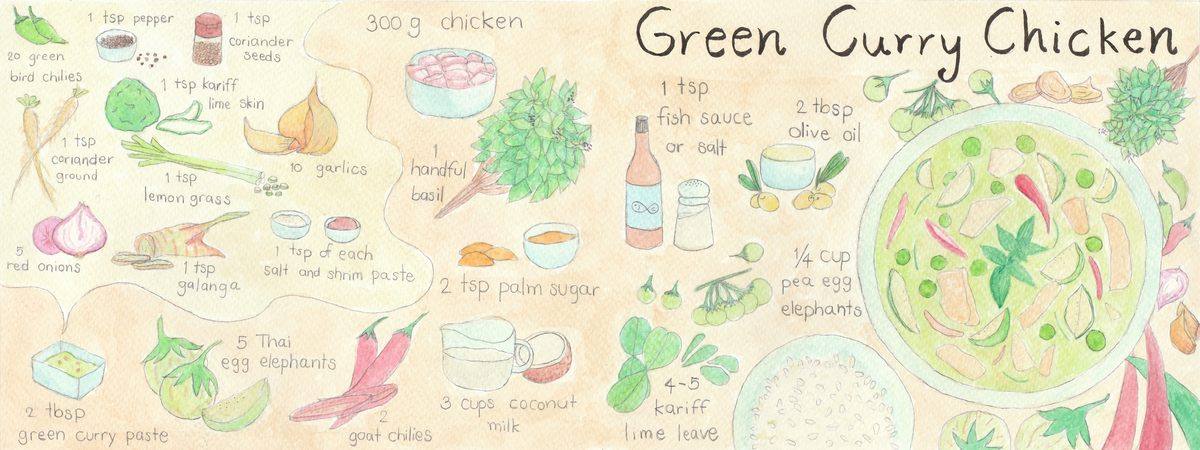 Green Curry Chicken
20 green
bird chilies
1 tsp pepper
1 tsp
coriander
seeds
1 tsp kariff
lime skin
1 tsp
coriander
ground
1 tsp
lemon grass
10 garlics
5
red onions
1 tsp
galanga
1 tsp of each
salt and shrim paste
2 tbsp
green curry paste
5 Thai
egg elephants
2
goat chilies
300 g chicken
1
handful
basil
2 tsp palm sugar
3 cups coconut
milk
1 tsp
fish sauce
or salt
2 tbsp
olive oil
1/4 cup
pea egg
elephants
4-5
kariff
lime leave